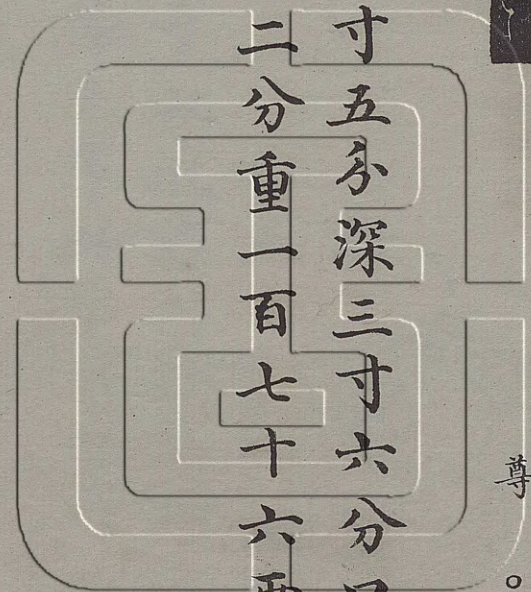 尊
寸五分深三寸六分
二分重一百七十六